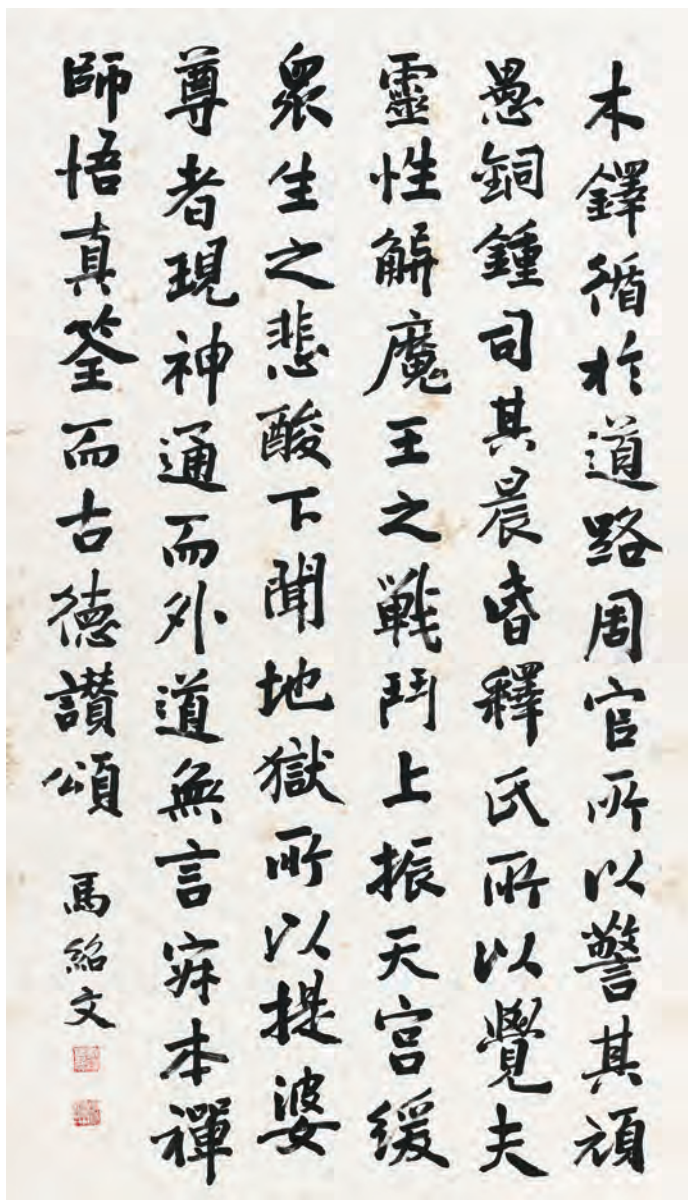 木鐸循於道路周官所以警其頑
愚銅鍾司其晨昏釋氏所以覺夫
靈性解魔王之戰鬥上振天宮緩
眾生之悲酸下聞地獄所以提婆
尊者現神通而外道無言寐本禪
師悟真筌而古德讃頌
馬紹文